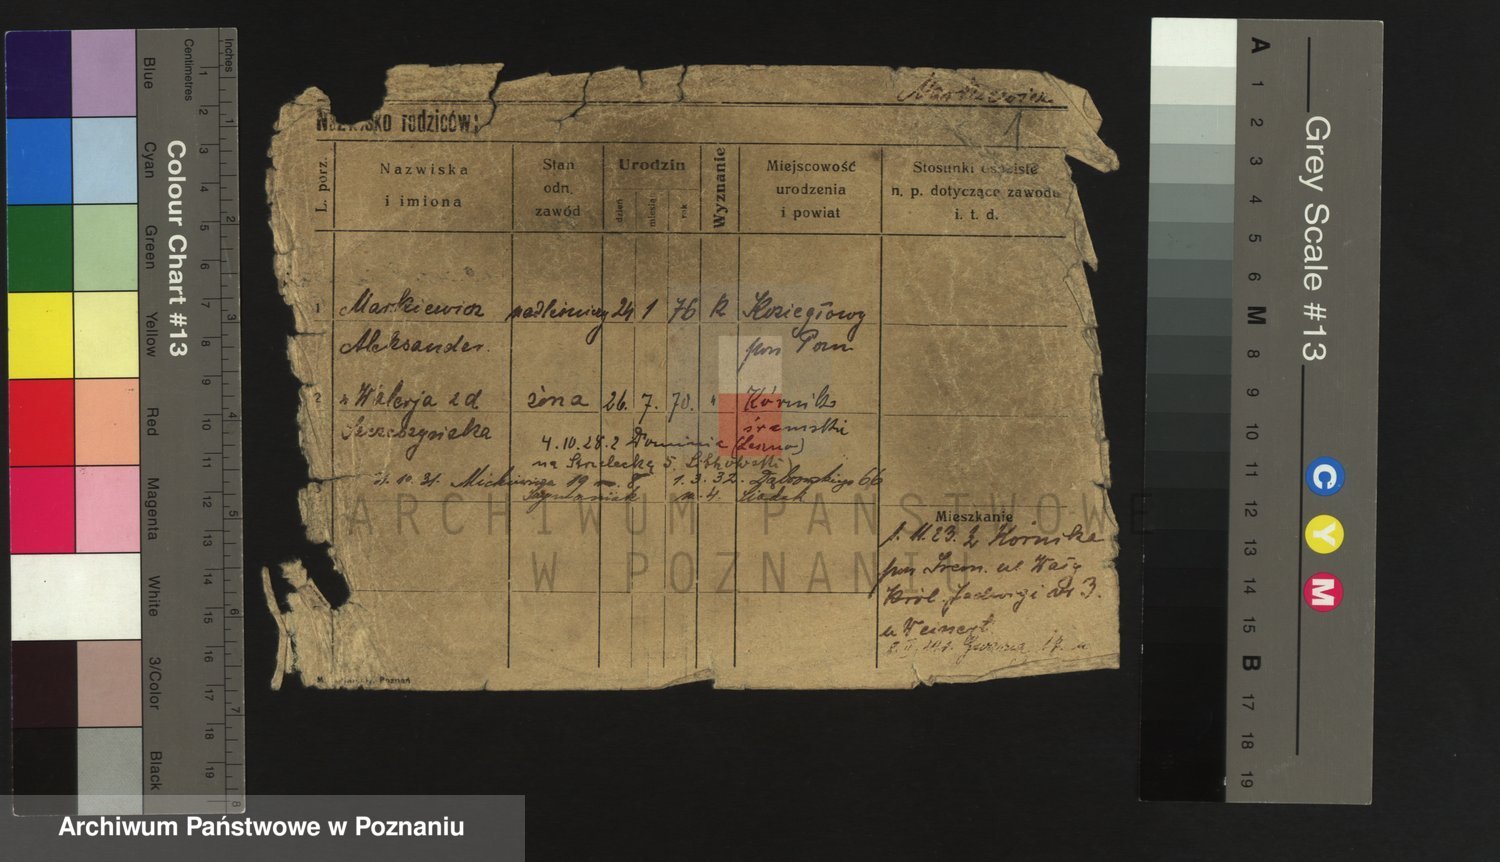 Nazwisko rodziców:
L. porz.
Nazwiska
i imiona
Stan
odn.
zawód
Urodzin
dzień
miesiąc
rok
Wyznanie
Miejscowość
urodzenia
i powiat
Stosunki osobiste
n. p. dotyczące zawodu
i. t. d.
1 Markiewicz nadleśniczy 24 1 76 k Koziegłowy
Aleksander. pow Pozn
2 " Walerja z d żona 26. 7. 70. " Kórnik
śremski
4.10.28. z Dominia (Leszno)
na Strzelecką 5
31.10.31. Mickiewicza 19 1.3.32. Dąbrowskiego 66
Mieszkanie
1.11.23. z Kórnika
pow Śrem. ul Wały
Król. Jadwigi 3.
u Weinert
ARCHIWUM PAŃSTWOWE
W POZNANIU
Poznań
Archiwum Państwowe w Poznaniu
Inches
Centimetres
1 2 3 4 5 6 7 8 9 10 11 12 13 14 15 16 17 18 19
1 2 3 4 5 6 7 8
Colour Chart #13
Blue
Cyan
Green
Yellow
Red
Magenta
White
3/Color
Black
Grey Scale #13
A 1 2 3 4 5 6 M 8 9 10 11 12 13 14 15 B 17 18 19
C
Y
M